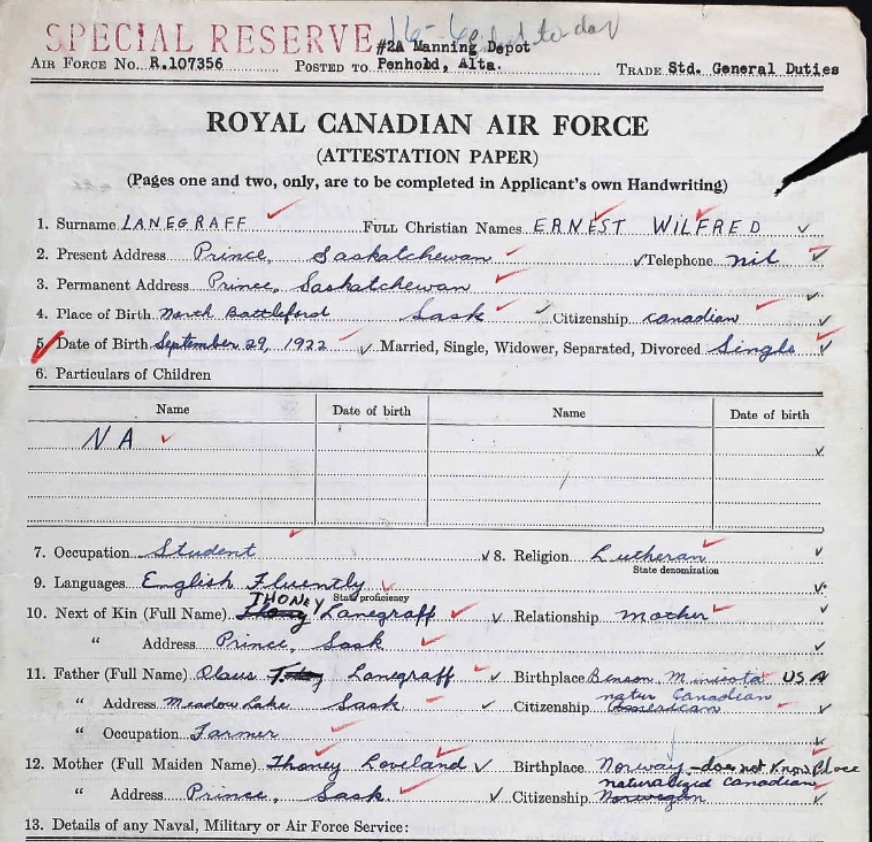 SPECIAL RESERVE
#2A Manning Depot
to-day
AIR FORCE No. R.107356 POSTED TO Penhold, Alta. TRADE Std. General Duties
ROYAL CANADIAN AIR FORCE
(ATTESTATION PAPER)
(Pages one and two, only, are to be completed in Applicant's own Handwriting)
1. Surname LANEGRAFF FULL Christian Names ERNEST WILFRED
2. Present Address Prince, Saskatchewan Telephone nil
3. Permanent Address Prince, Saskatchewan
4. Place of Birth North Battleford Sask Citizenship Canadian
5. Date of Birth September 29, 1922 Married, Single, Widower, Separated, Divorced Single
6. Particulars of Children
Name Date of birth Name Date of birth
NA
7. Occupation Student 8. Religion Lutheran
State denomination
9. Languages English Fluently
State proficiency
THONEY
10. Next of Kin (Full Name) Lanegraff Relationship mother
" Address Prince, Sask
11. Father (Full Name) Olaus Lanegraff Birthplace Benson Minisota USA
natur Canadian
" Address Meadow Lake Sask. Citizenship American
" Occupation Farmer
12. Mother (Full Maiden Name) Thoney Loveland Birthplace Norway - does not know place
naturalized Canadian
" Address Prince, Sask. Citizenship Norwegian
13. Details of any Naval, Military or Air Force Service: